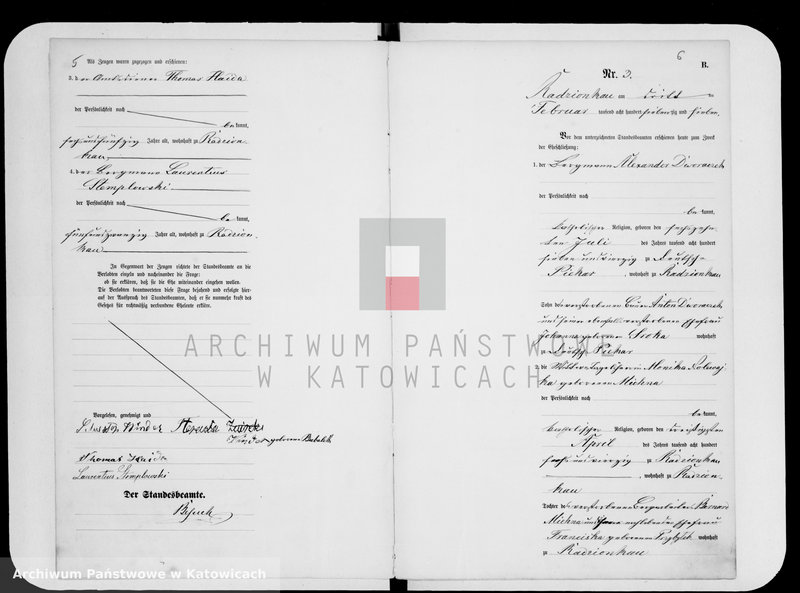 5
Als Zeugen waren zugezogen und erschienen:
3. der Amtsdiener Thomas Haida
der Persönlichkeit nach
bekannt,
sechsundfünfzig Jahre alt, wohnhaft zu Radzion-
kau
4. der Bergmann Laurentius
Stemplowski
der Persönlichkeit nach
bekannt,
fünfundzwanzig Jahre alt, wohnhaft zu Radzion-
kau
In Gegenwart der Zeugen richtete der Standesbeamte an die
Verlobten einzeln und nacheinander die Frage:
ob sie erklären, daß sie die Ehe miteinander eingehen wollen.
Die Verlobten beantworteten diese Frage bejahend und erfolgte hier-
auf der Ausspruch des Standesbeamten, daß er sie nunmehr kraft des
Gesetzes für rechtmäßig verbundene Eheleute erkläre.
Vorgelesen, genehmigt und
geborene
Thomas Haida
Laurentius Stemplowski
Der Standesbeamte.
6
B.
Nr. 3.
Radzionkau am
Februar tausend acht hundert siebenzig und sieben.
Vor dem unterzeichneten Standesbeamten erschienen heute zum Zweck
der Eheschließung:
1. der Bergmann Alexander Dworaczek
der Persönlichkeit nach
bekannt,
katholischer Religion, geboren den sechszehn-
ten Juli des Jahres tausend acht hundert
sieben und vierzig zu Deutsch-
Piekar, wohnhaft zu Radzionkau
Sohn des verstorbenen Anton Dworaczek
und seiner ebenfalls verstorbenen Ehefrau
Johanna geborenen Sroka wohnhaft
zu Deutsch Piekar
2. die Wittwe Monika
geborene Michna
der Persönlichkeit nach
bekannt,
katholischer Religion, geboren den dreißigsten
April des Jahres tausend acht hundert
sechs und vierzig zu Radzionkau
, wohnhaft zu Radzion-
kau
Tochter des verstorbenen Bergarbeiter
Michna und Ehefrau
Franciska geborenen wohnhaft
zu Radzionkau
ARCHIWUM PAŃSTWOWE
W KATOWICACH
Archiwum Państwowe w Katowicach